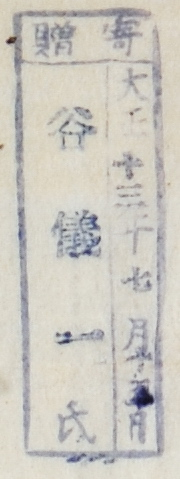 寄贈
大正十三年七月十五日
谷儀一氏